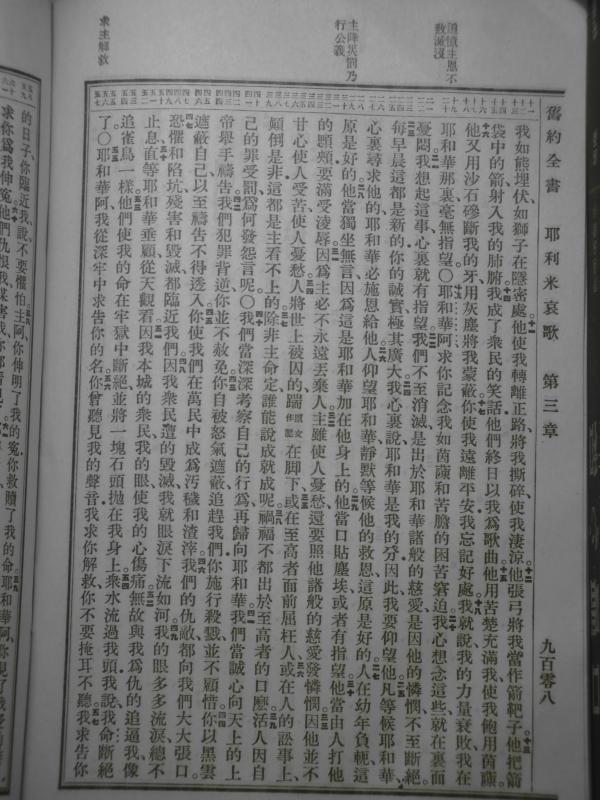 舊約全書 耶利米哀歌 第三章 九百零八
道憤主恩不
致滅沒
主降災罰乃
行公義
求主解救
我如熊埋伏如獅子在隱密處他使我轉離正路將我撕碎使我淒涼他張弓將我當作箭靶子他把箭
袋中的箭射入我的肺腑我成了衆民的笑話他們終日以我爲歌曲他用苦楚充滿我使我飽用茵蔯
他又用沙石磣斷我的牙用灰塵將我蒙蔽你使我遠離平安我忘記好處我就說我的力量衰敗我在
耶和華那裏毫無指望〇耶和華阿求你記念我如茵蔯和苦膽的困苦窘迫我心想念這些就在裏面
憂悶我想起這事心裏就有指望我們不至消滅是出於耶和華諸般的慈愛是因他的憐憫不至斷絕
每早晨這都是新的你的誠實極其廣大我心裏說耶和華是我的分因此我要仰望他凡等候耶和華
心裏尋求他的耶和華必施恩給他人仰望耶和華靜默等候他的救恩這原是好的人在幼年負軛這
原是好的他當獨坐無言因爲這是耶和華加在他身上的他當口貼塵埃或者有指望他當由人打他
的顋頰要滿受凌辱因爲主必不永遠丟棄人主雖使人憂愁還要照他諸般的慈愛發憐憫因他並不
甘心使人受苦使人憂愁人將世上被囚的踹原文作壓在脚下或在至高者面前屈枉人或在人的訟事上
顛倒是非這都是主看不上的除非主命定誰能說成就成呢禍福不都出於至高者的口麽活人因自
己的罪受罰爲何發怨言呢〇我們當深深考察自己的行爲再歸向耶和華我們當誠心向天上的上
帝舉手禱告我們犯罪背逆你並不赦免你自被怒氣遮蔽追趕我們你施行殺戮並不顧惜你以黑雲
遮蔽自己以至禱告不得透入你使我們在萬民中成爲汚穢和渣滓我們的仇敵都向我們大大張口
恐懼和陷坑殘害和毀滅都臨近我們因我衆民遭的毀滅我就眼淚下流如河我的眼多多流淚總不
止息直等耶和華垂顧從天觀看因我本城的衆民我的眼使我的心傷痛無故與我爲仇的追逼我像
追雀鳥一樣他們使我的命在牢獄中斷絕並將一塊石頭拋在我身上衆水流過我頭我說我命斷絕
了〇耶和華阿我從深牢中求告你的名你曾聽見我的聲音我求你解救你不要掩耳不聽我求告你
的日子你臨近我說不要懼怕主阿你伸明了我的冤你救贖了我的命耶和華阿你見了我
求你爲我伸冤他們仇恨我謀害我你都看見